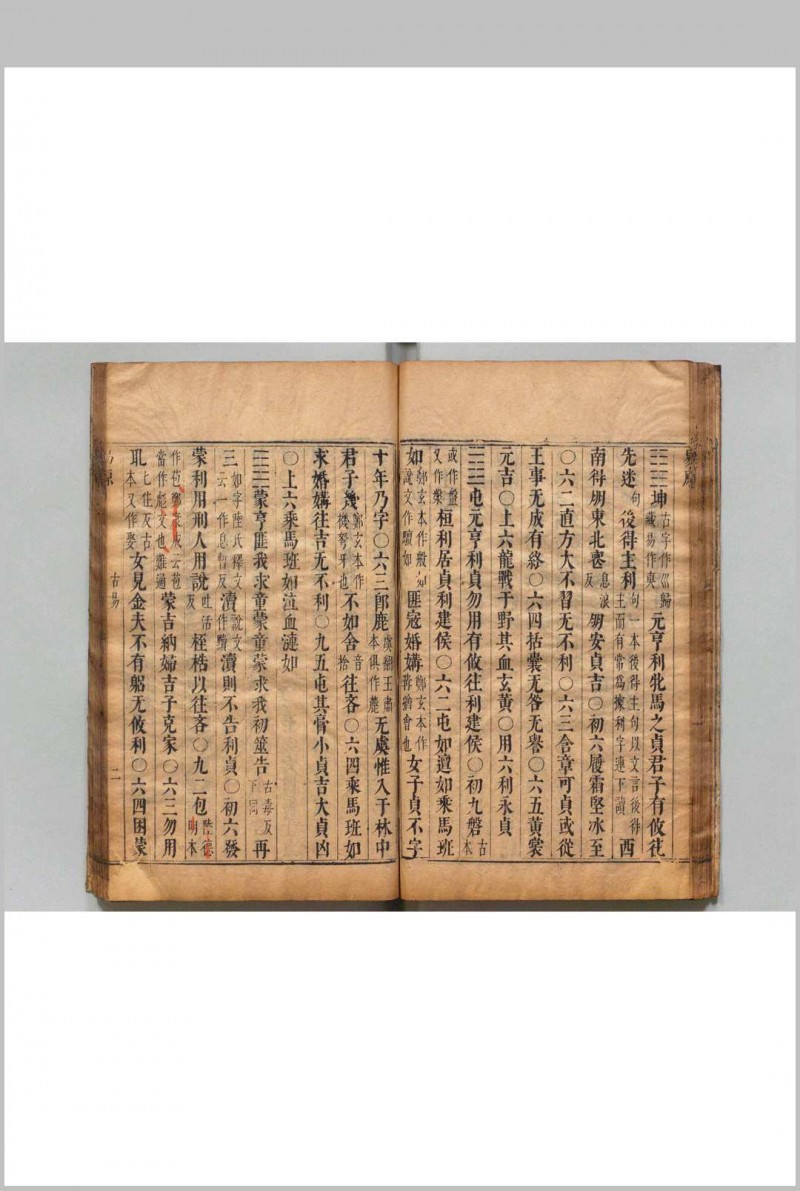 ☷☷坤古字作巛歸藏易作𡘍元亨利牝馬之貞君子有攸往
先迷句後得主利句一本後得主句以文言後得主而有常爲據利字連下讀西
南得朋東北喪息浪反朋安貞吉○初六履霜堅冰至
○六二直方大不習无不利○六三含章可貞或從
王事无成有終○六四括囊无咎无譽○六五黃裳
元吉○上六龍戰于野其血玄黃○用六利永貞
屯元亨利貞勿用有攸往利建侯○初九磐古本
或作盤又作槃桓利居貞利建侯○六二屯如邅如乘馬班
如鄭玄本作般如說文作驙如匪寇婚媾鄭玄本作冓猶會也女子貞不字
十年乃字○六三卽鹿虞翻王肅本俱作麓无虞惟入于林中
君子幾鄭玄本作機弩牙也不如舍音捨往吝○六四乘馬班如
求婚媾往吉无不利○九五屯其膏小貞吉大貞凶
○上六乘馬班如泣血漣如
蒙亨匪我求童蒙童蒙求我初筮告古毒反下同再
三如字陸氏釋文云一作息暫反瀆說文作黷瀆則不告利貞○初六發
蒙利用刑人用說吐活反桎梏以往吝○九二包陸德明本
作苞云苞當作彪文也蒙吉納婦吉子克家○六三勿用
取七住反古本又作娶女見金夫不有躬无攸利○六四困蒙
古易
二